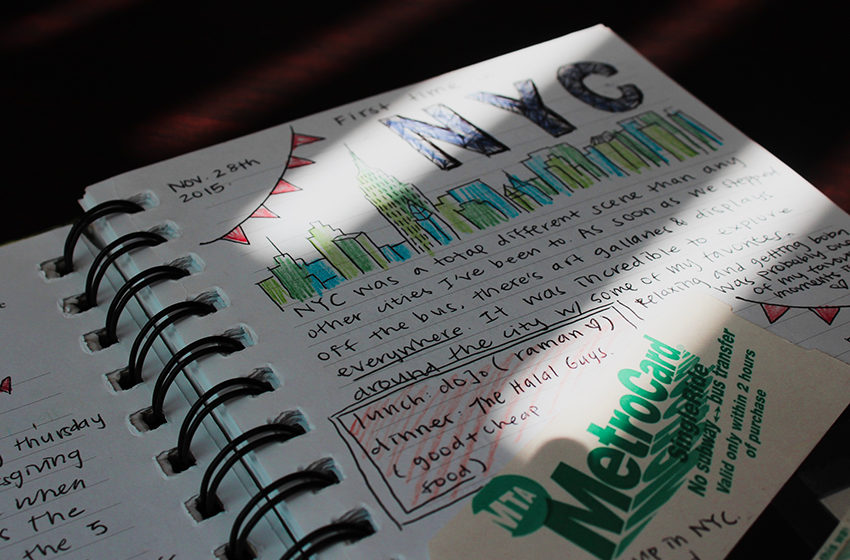 First Time
NYC
Nov. 28th
2015.
NYC was a total different scene than any
other cities I've been to. As soon as we stepped
off the bus, there's art galleries & displays
everywhere. It was incredible to explore
around the city w/ some of my favorites.
Relaxing and getting boba
was probably one
of my favo
moments
lunch: dojo (raman ♡)
dinner: The Halal Guys.
(good + cheap
food)
MTA
MetroCard
SingleRide
No subway ↔ bus transfer
Valid only within 2 hours
of purchase
in NYC.
thursday
when
the
the 5